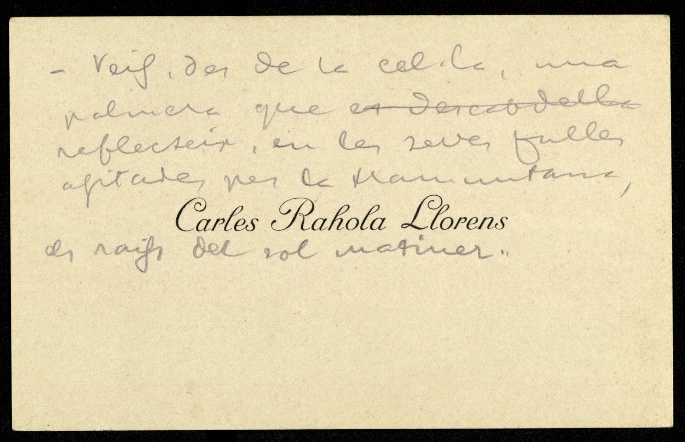 - Veig, des de la cel·la, una
palmera que es descabdella
reflecteix, en les seves fulles
agitades per la tramuntana,
Carles Rahola Llorens
els raigs del sol matiner.